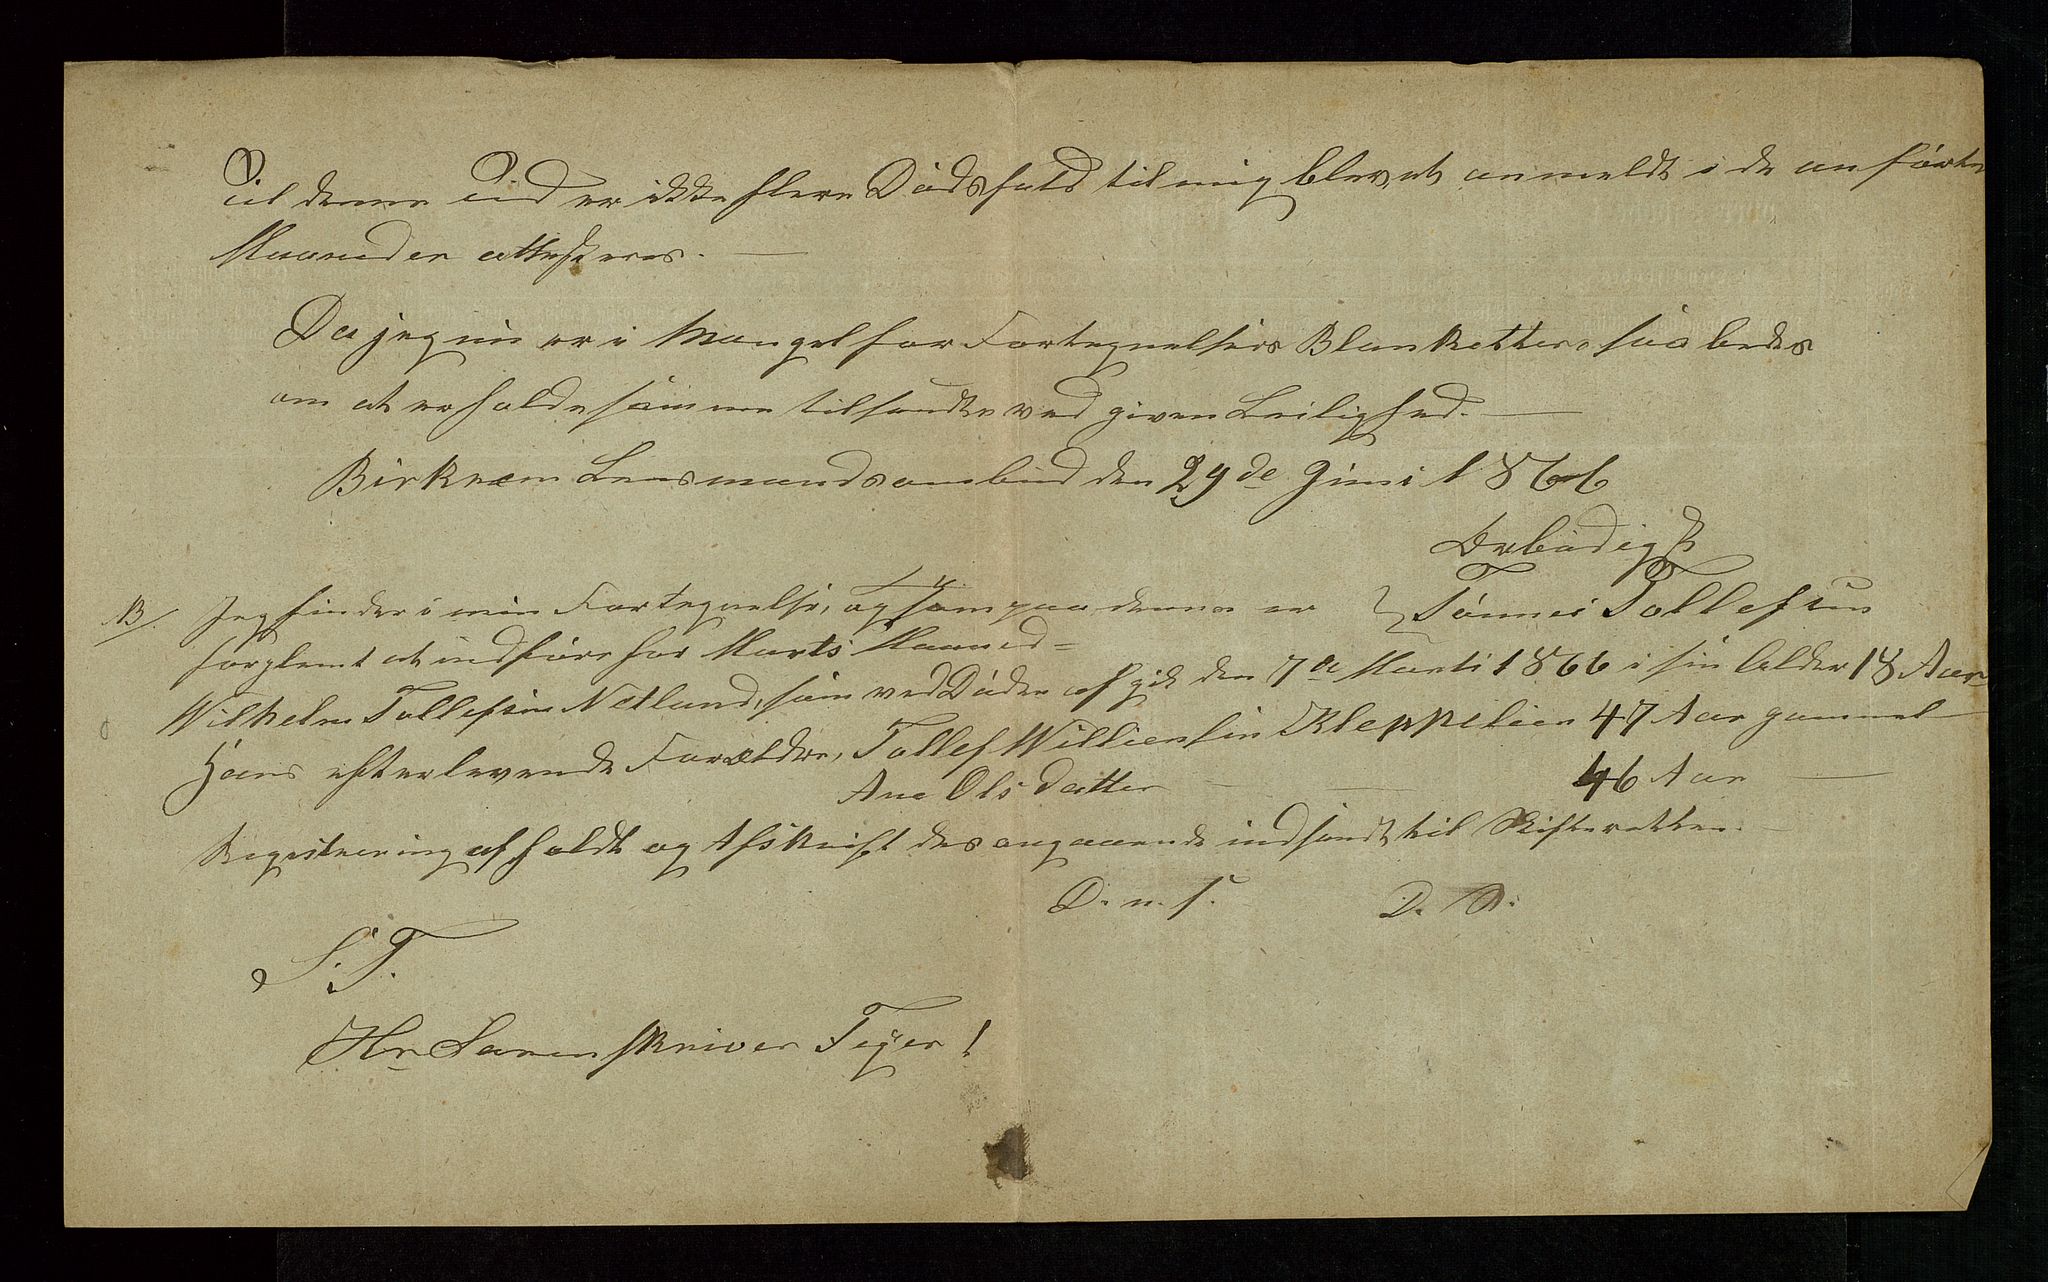 Til denne Tid er ikke flere Dödsfald til mig blevet anmeldt i de anförte
Maaneder attesteres. —
Da jeg nu er i Mangel for Fortegnelses Blanketter, saa bedes
om at erholde samme tilsendte ved given Leilighed. —
Birkrem Lensmandsombud den 29de Juni 1866
Ærbödigst
Tönnes Tollefsen
NB/. Jeg finder i min Fortegnelse, og som paa denne er
forglemt at indföre for Marts Maaned =
Wilhelm Tollefsen Netland, som ved Döden afgik den 7de Marti 1866 i sin Alder 18 Aar
Hans efterlevende Forældre, Tollef Willumsen Kleppelien 47 Aar gammel
Ane Olsdatter — — 46 Aar —
Registrering afholdt og Afskrift desangaaende indsendt til Skifteretten. —
D. u. s. D. S.
S. T.
Hr Sorenskriver Feyer!